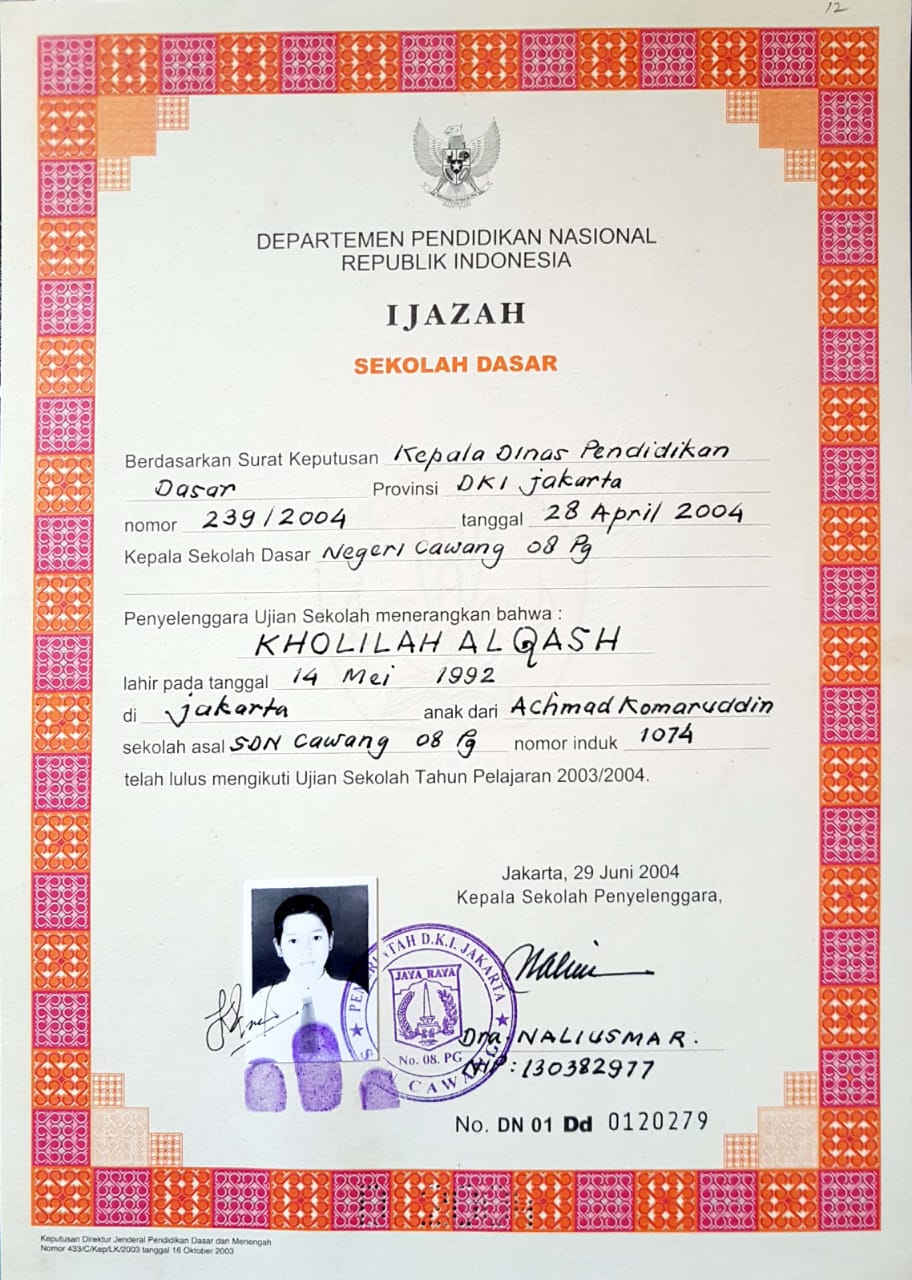 12
DEPARTEMEN PENDIDIKAN NASIONAL
REPUBLIK INDONESIA
IJAZAH
SEKOLAH DASAR
Berdasarkan Surat Keputusan Kepala Dinas Pendidikan
Dasar Provinsi DKI jakarta
nomor 239/2004 tanggal 28 April 2004
Kepala Sekolah Dasar Negeri Cawang 08 Pg
Penyelenggara Ujian Sekolah menerangkan bahwa :
KHOLILAH ALQASH
lahir pada tanggal 14 Mei 1992
di jakarta anak dari Achmad Komaruddin
sekolah asal SDN Cawang 08 Pg nomor induk 1074
telah lulus mengikuti Ujian Sekolah Tahun Pelajaran 2003/2004.
Jakarta, 29 Juni 2004
Kepala Sekolah Penyelenggara,
TAH D.K.I. JAKARTA
JAYA RAYA
No. 08. PG
CAWANG
Dra. NALIUSMAR.
NIP : 130382977
No. DN 01 Dd 0120279
Keputusan Direktur Jenderal Pendidikan Dasar dan Menengah
Nomor 433/C/Kep/LK/2003 tanggal 16 Oktober 2003